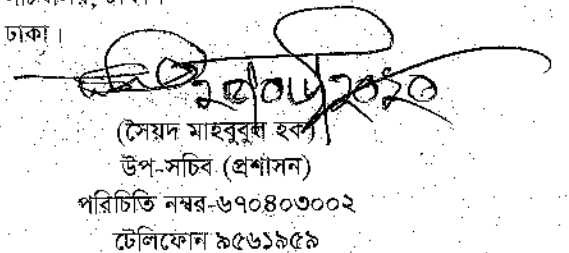 ঢাকা।
২০২০
(সৈয়দ মাহবুবুল হক)
উপ-সচিব (প্রশাসন)
পরিচিতি নম্বর-৬৭০৪০৩০০২
টেলিফোন ৯৫৬১৯৫৯